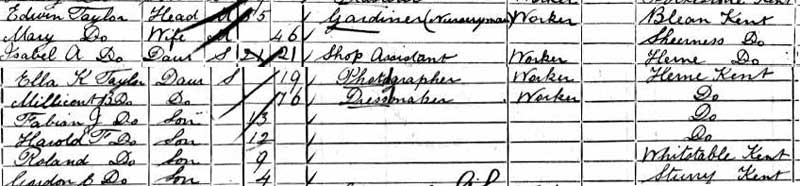 Edwin Taylor Head M 55 Gardiner (Nurseryman) Worker Blean Kent
Mary Do Wife M 46 Sheerness Do
Isabel A Do Daur S 21 21 Shop Assistant Worker Herne Do
Ella K Taylor Daur S 19 Photographer Worker Herne Kent
Millicent B Do Do 16 Dressmaker Worker Do
Fabian J Do Son 13 Do
Harold F Do Son 12 Do
Roland Do Son 9 Whitstable Kent
Gordon E Do Son 4 Sturry Kent